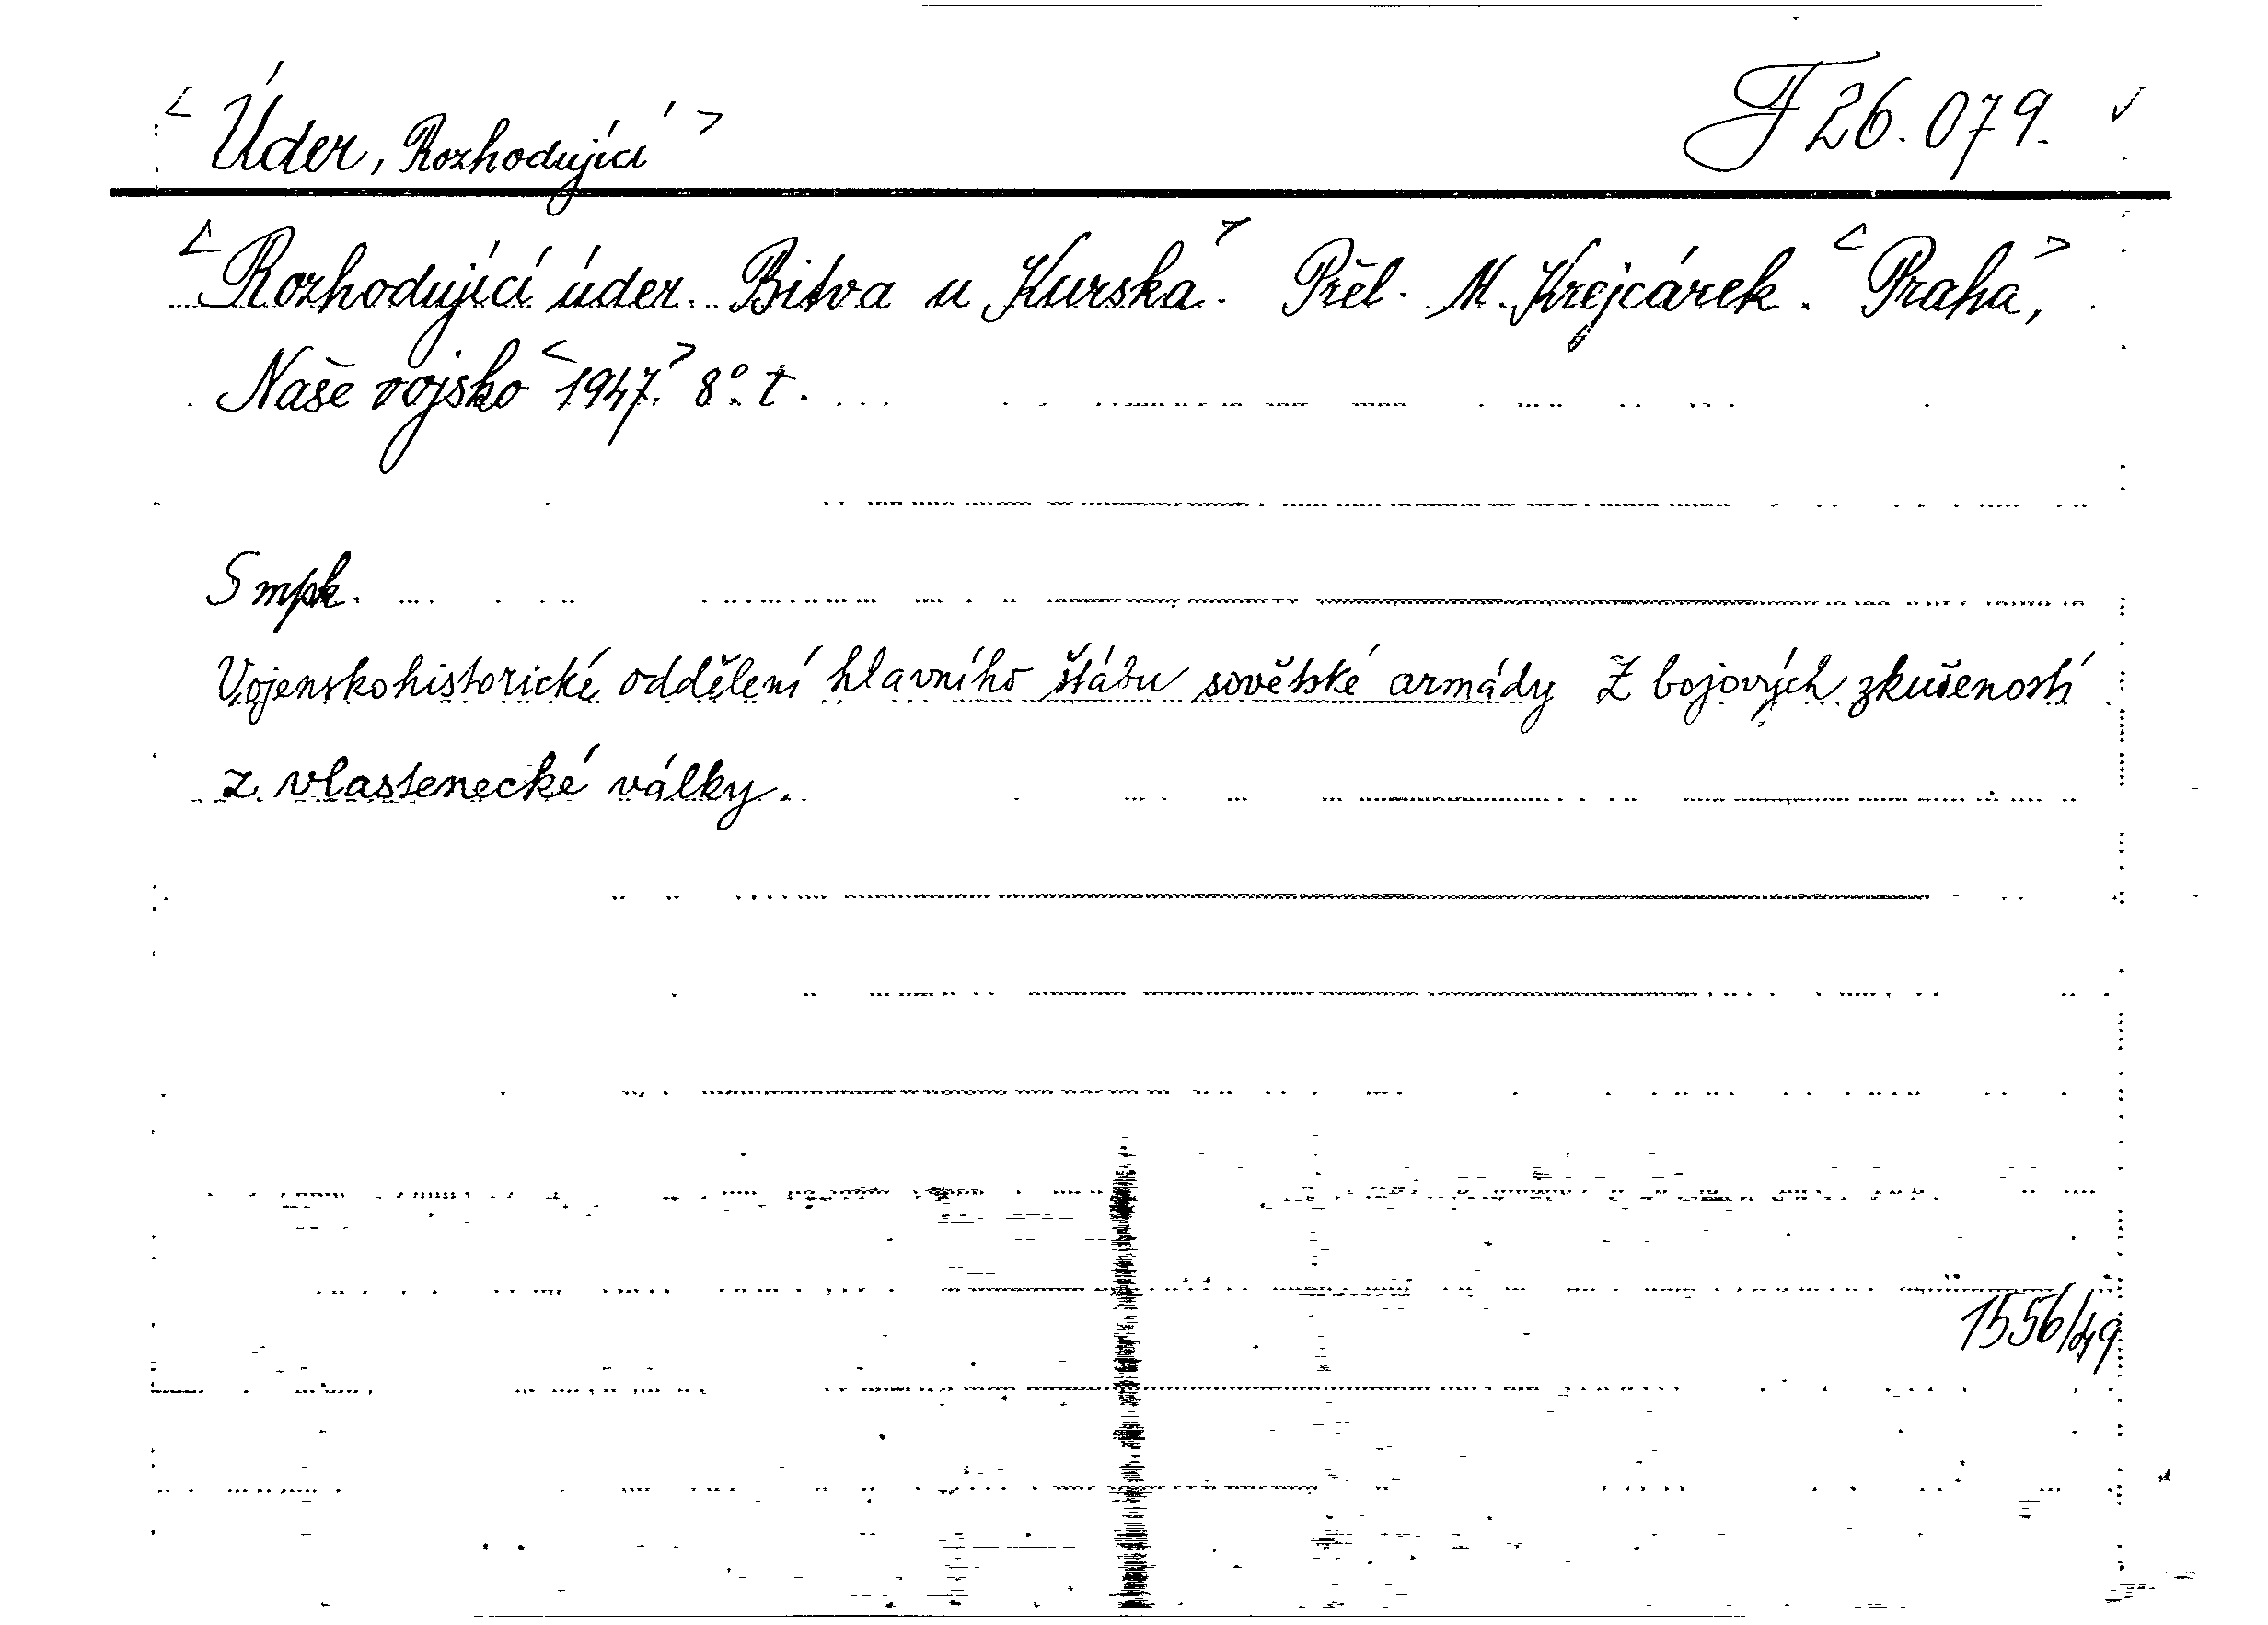 < Úder, Rozhodující > F 26.079. ✓
< Rozhodující úder. Bitva u Kurska. > Přel. M. Krejcárek. < Praha, >
Naše vojsko < 1947. > 8°. t.
5 mpk.
Vojenskohistorické oddělení hlavního štábu sovětské armády Z bojových zkušeností
z vlastenecké války.
1556/49